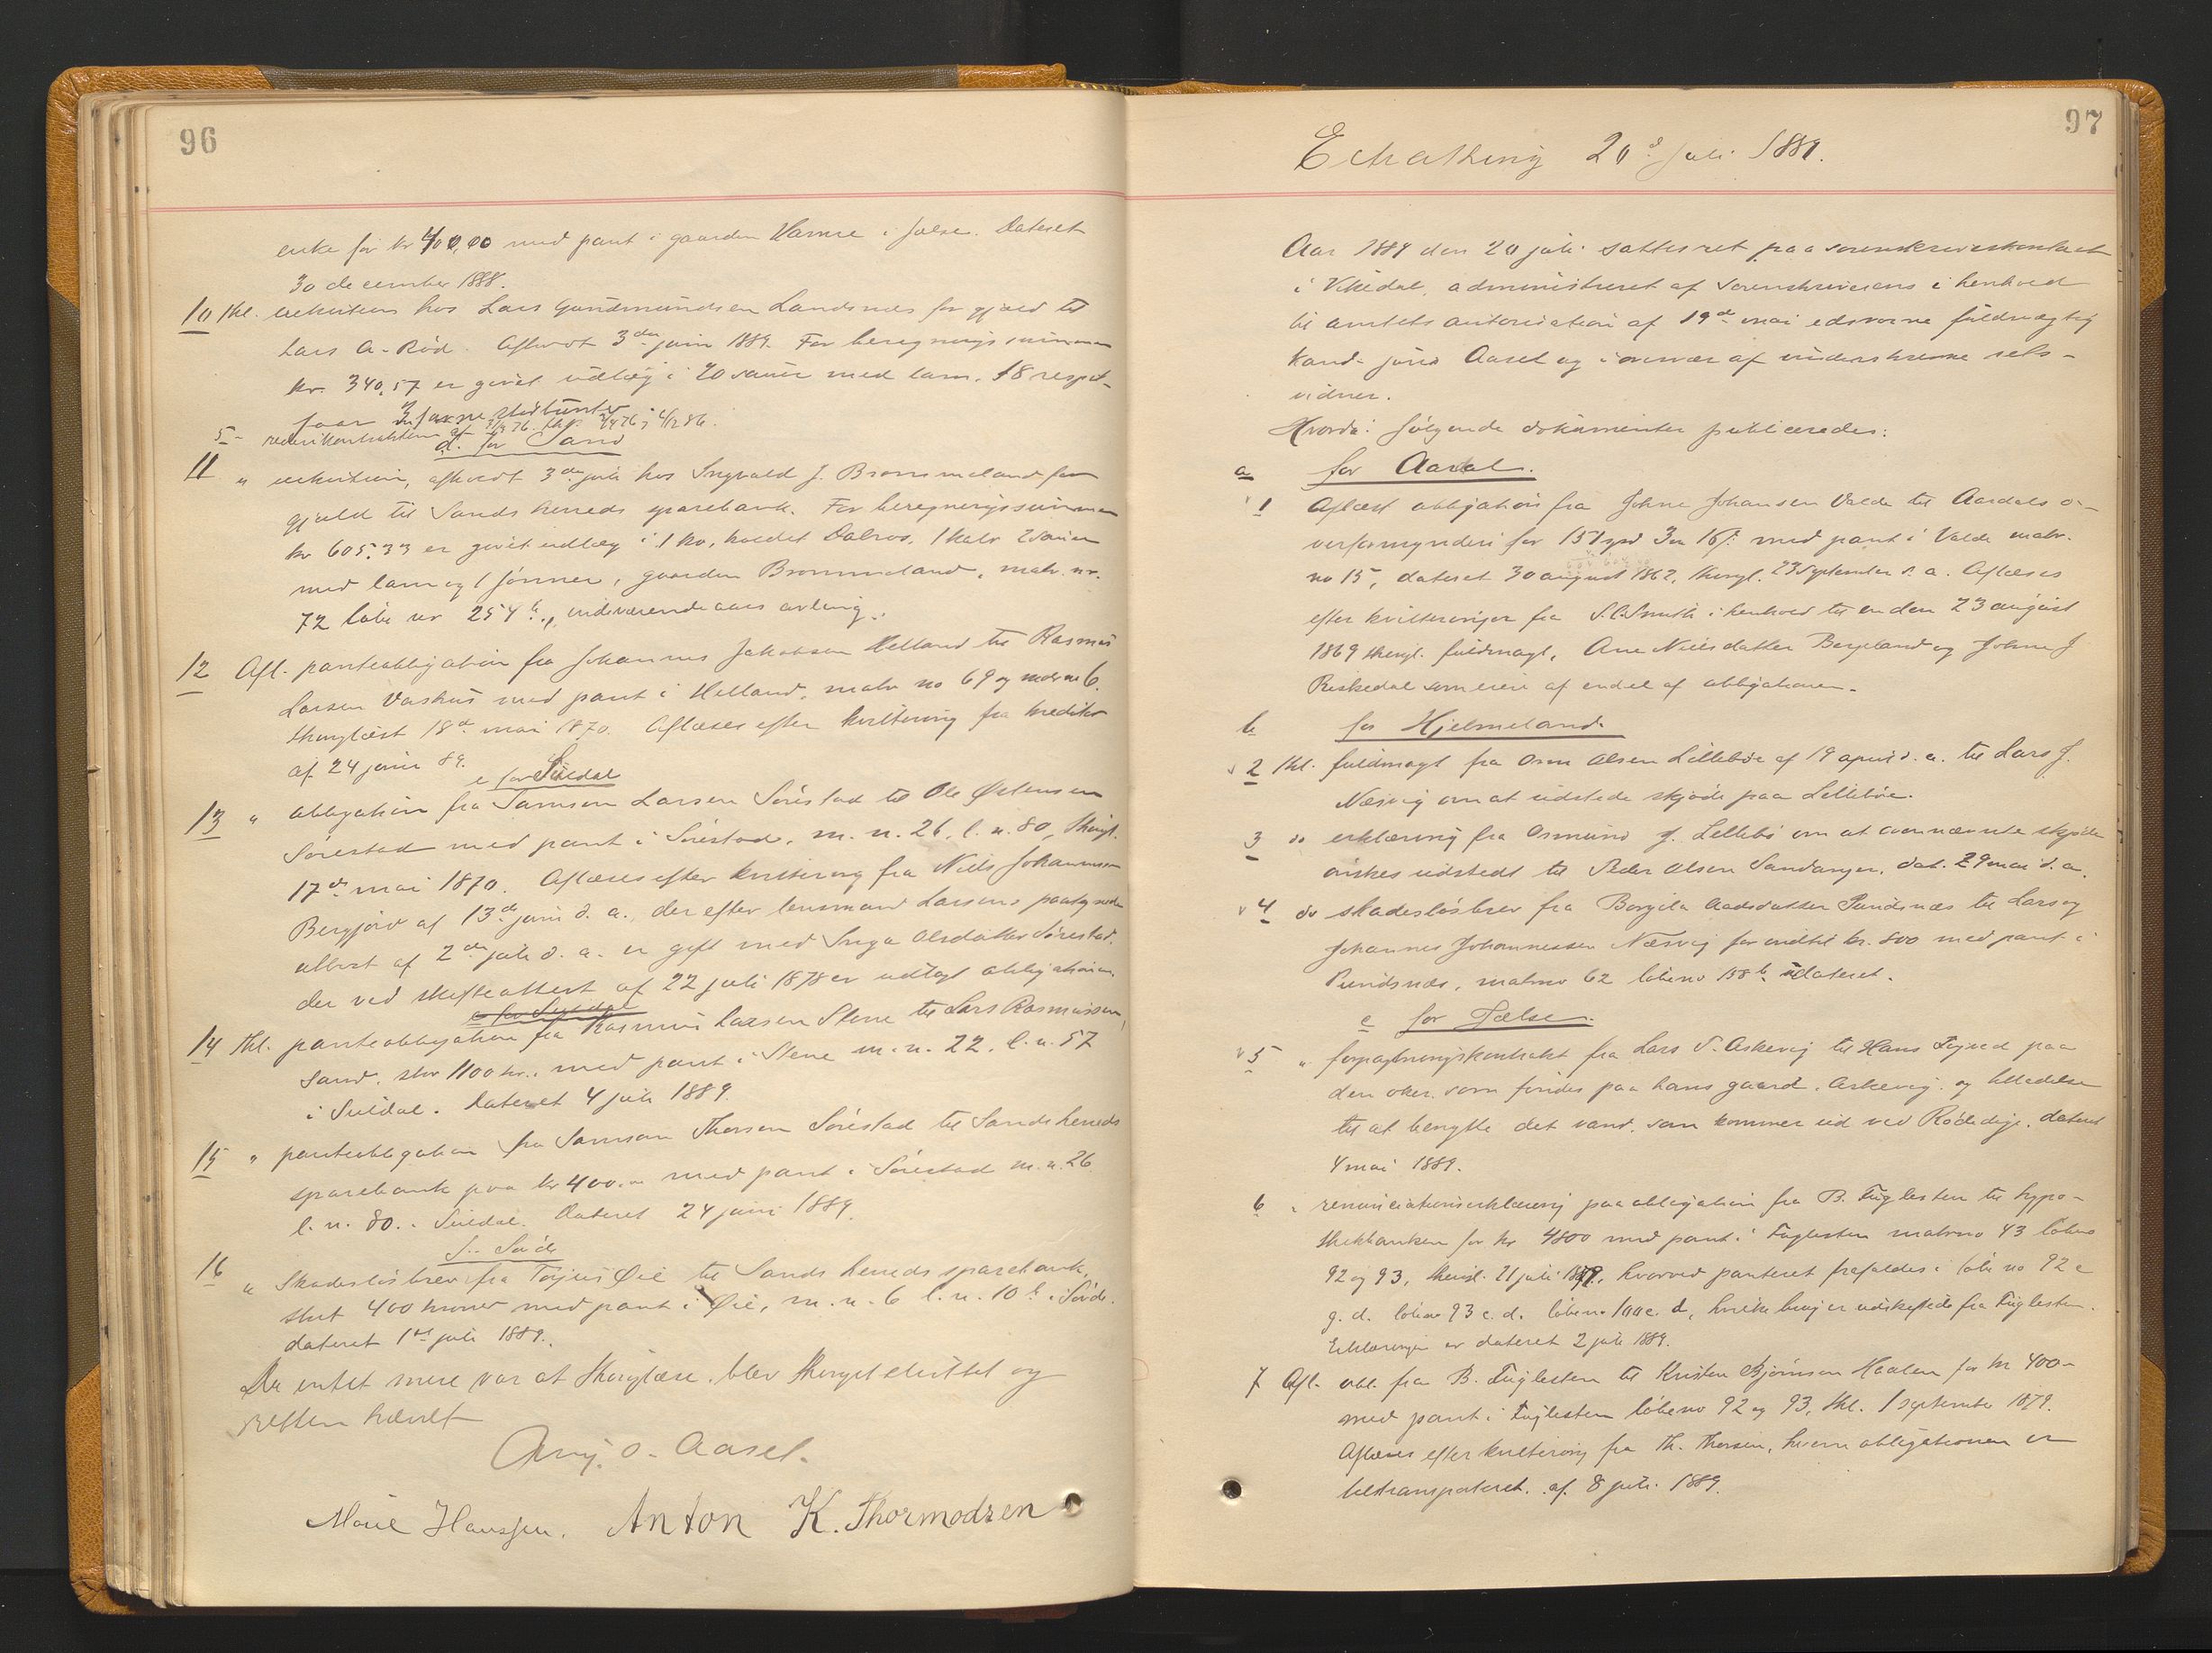 96
enke for kr 400,00 med pant i gaarden Hamre i Jelse. Dateret
30 december 1888.
10 thl. exekution hos Lars Gundmundsen Landsnes for gjæld til
Lars A. Röd. Afholdt 3die juni 1889. For beregningssummen
kr. 340,57 er givet udlæg i 20 sauer med lam, 18
faar
5
d. for Sand
11 " exekution, afholdt 3die juli hos Ingvald J. Brommeland for
gjæld til Sands herreds sparebank. For beregningssummen
kr 605,33 er givet udlæg i 1 ko, kaldet Dalros, 1 kalv 2 sauer
med lam og 1 gaarden Brommeland, matr. nr.
72 løbe nr 254 b., indeværende aars avling.
12 Afl. panteobligation fra Johannes Jakobsen Helland til Rasmus
Larsen Vashus med pant i Helland, matr no 69
thinglæst 18de mai 1870. Aflæses efter kvittering fra kreditor
af 24 juni 89.
e for Suldal
13 " obligation fra Samson Larsen Sörestad til Ole Östensen
Sörestad med pant i Sörestad, m. n. 26, l. n. 80, thingl.
17de mai 1870. Aflæses efter kvittering fra Niels Johannesen
Bergjord af 13de juni d. a., der efter lensmand Larsens paategnede
attest af 2den juli d. a. er gift med Inga Olsdatter Sörestad,
der ved skifteattest af 22 juli 1878 er udlagt obligationen.
e for Suldal
14 thl. panteobligation fra Rasmus Larsen Stene til Lars Rasmussen,
Sand, stor 1100 kr. med pant i Stene m. n. 22, l. n. 57
i Suldal. Dateret 4 juli 1889.
15 " panteobligation fra Samson Thorsen Sörestad til Sands herreds
sparebank paa kr 400.- med pant i Sörestad m. n. 26
l. n. 80. i Suldal. Dateret 24 juni 1889.
16 " Skadeslösbrev fra Tojus Öie til Sands herreds sparebank,
stort 400 kroner med pant i Öie, m. n. 6 l. n. 10 b i
dateret 1ste juli 1889.
Da intet mere var at thinglæse, blev thinget sluttet og
retten hævet
O. Aaset.
Marie Hanssen. Anton K. Thormodsen
97
Extrathing 20de Juli 1889.
Aar 1889 den 20 juli sattes ret paa sorenskriverkontoret
i Vikedal, administreret af sorenskriverens i henhold
til amtets autorisation af 19de mai edsvorne fuldmægtig
kand. juris Aaset og i overvær af underskrevne rets-
vidner.
Hvorda: følgende dokumenter publiceredes:
a for Aardal.
1 Aflæst obligation fra Johne Johansen Valde til Aardals o-
verformynderi for 151 spd 3 16 s. med pant i Valde matr.
no 15, dateret 30 august 1862, thingl. 23 September s. a. Aflæses
efter kvitteringer fra S. C. Smith i henhold til en den 23 august
1869 thingl. fuldmagt, Ane Nielsdatter Bergeland og Johne J
Riskedal som eiere af endel af obligationen.
b for Hjelmeland.
2 thl. fuldmagt fra Osm Olsen Lilleböe af 19 april d. a. til Lars J.
Næsvig om at udstede skjöde paa Lilleböe.
3 do erklæring fra Osmund J. Lilleböe om at ovennævnte skjöde
önskes udstedt til Peder Olsen Sandanger, dat. 29 mai d. a.
4 do skadeslösbrev fra Borgila Aadsdatter Pundsnæs til Lars og
Johannes Johannessen Næsvig for indtil kr. 800 med pant i
Pundsnæs, matrno 62 løbeno 158 b. udateret.
c for Jelse.
5 " forpagtningskontrakt fra Lars V. Askevig til Hans paa
den oker, som findes paa hans gaard Askevig, og tilladelse
til at benytte det vand, som kommer ud ved dateret
4 mai 1889.
6 " renunciationserklæring paa obligation fra B. Fuglesten til hypo-
thekbanken for kr 4800 med pant i Fuglesten matrno 43 løbeno
92 og 93, thingl. 21 juli hvorved panteret frafaldes i løbe no 92 c
g. d. løbeno 93 c. d. løbeno 100 c. d, hvilke brug er udskiftede fra Fuglesten.
Erklæringen er dateret 2 juli 1889.
7 Afl. obl. fra B. Fuglesten til Kristen Björnsen Haalen for kr 400-
med pant i Fuglesten løbeno 92 og 93, thl. 1 september 1879.
Aflæses efter kvittering fra Th. Thorsen, hvem obligationen er
tiltransporteret. af 8 juli 1889.